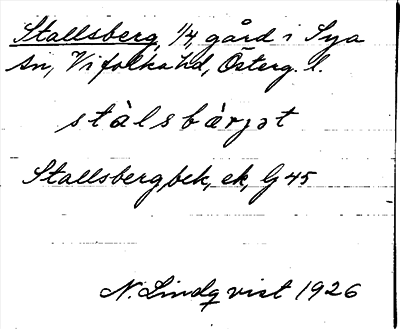 Stallsberg, 1/4, gård i Sya
sn, Vifolka hd, Österg. l.
stålsbárjət
Stallsberg bek, ek, G 45
N. Lindqvist 1926